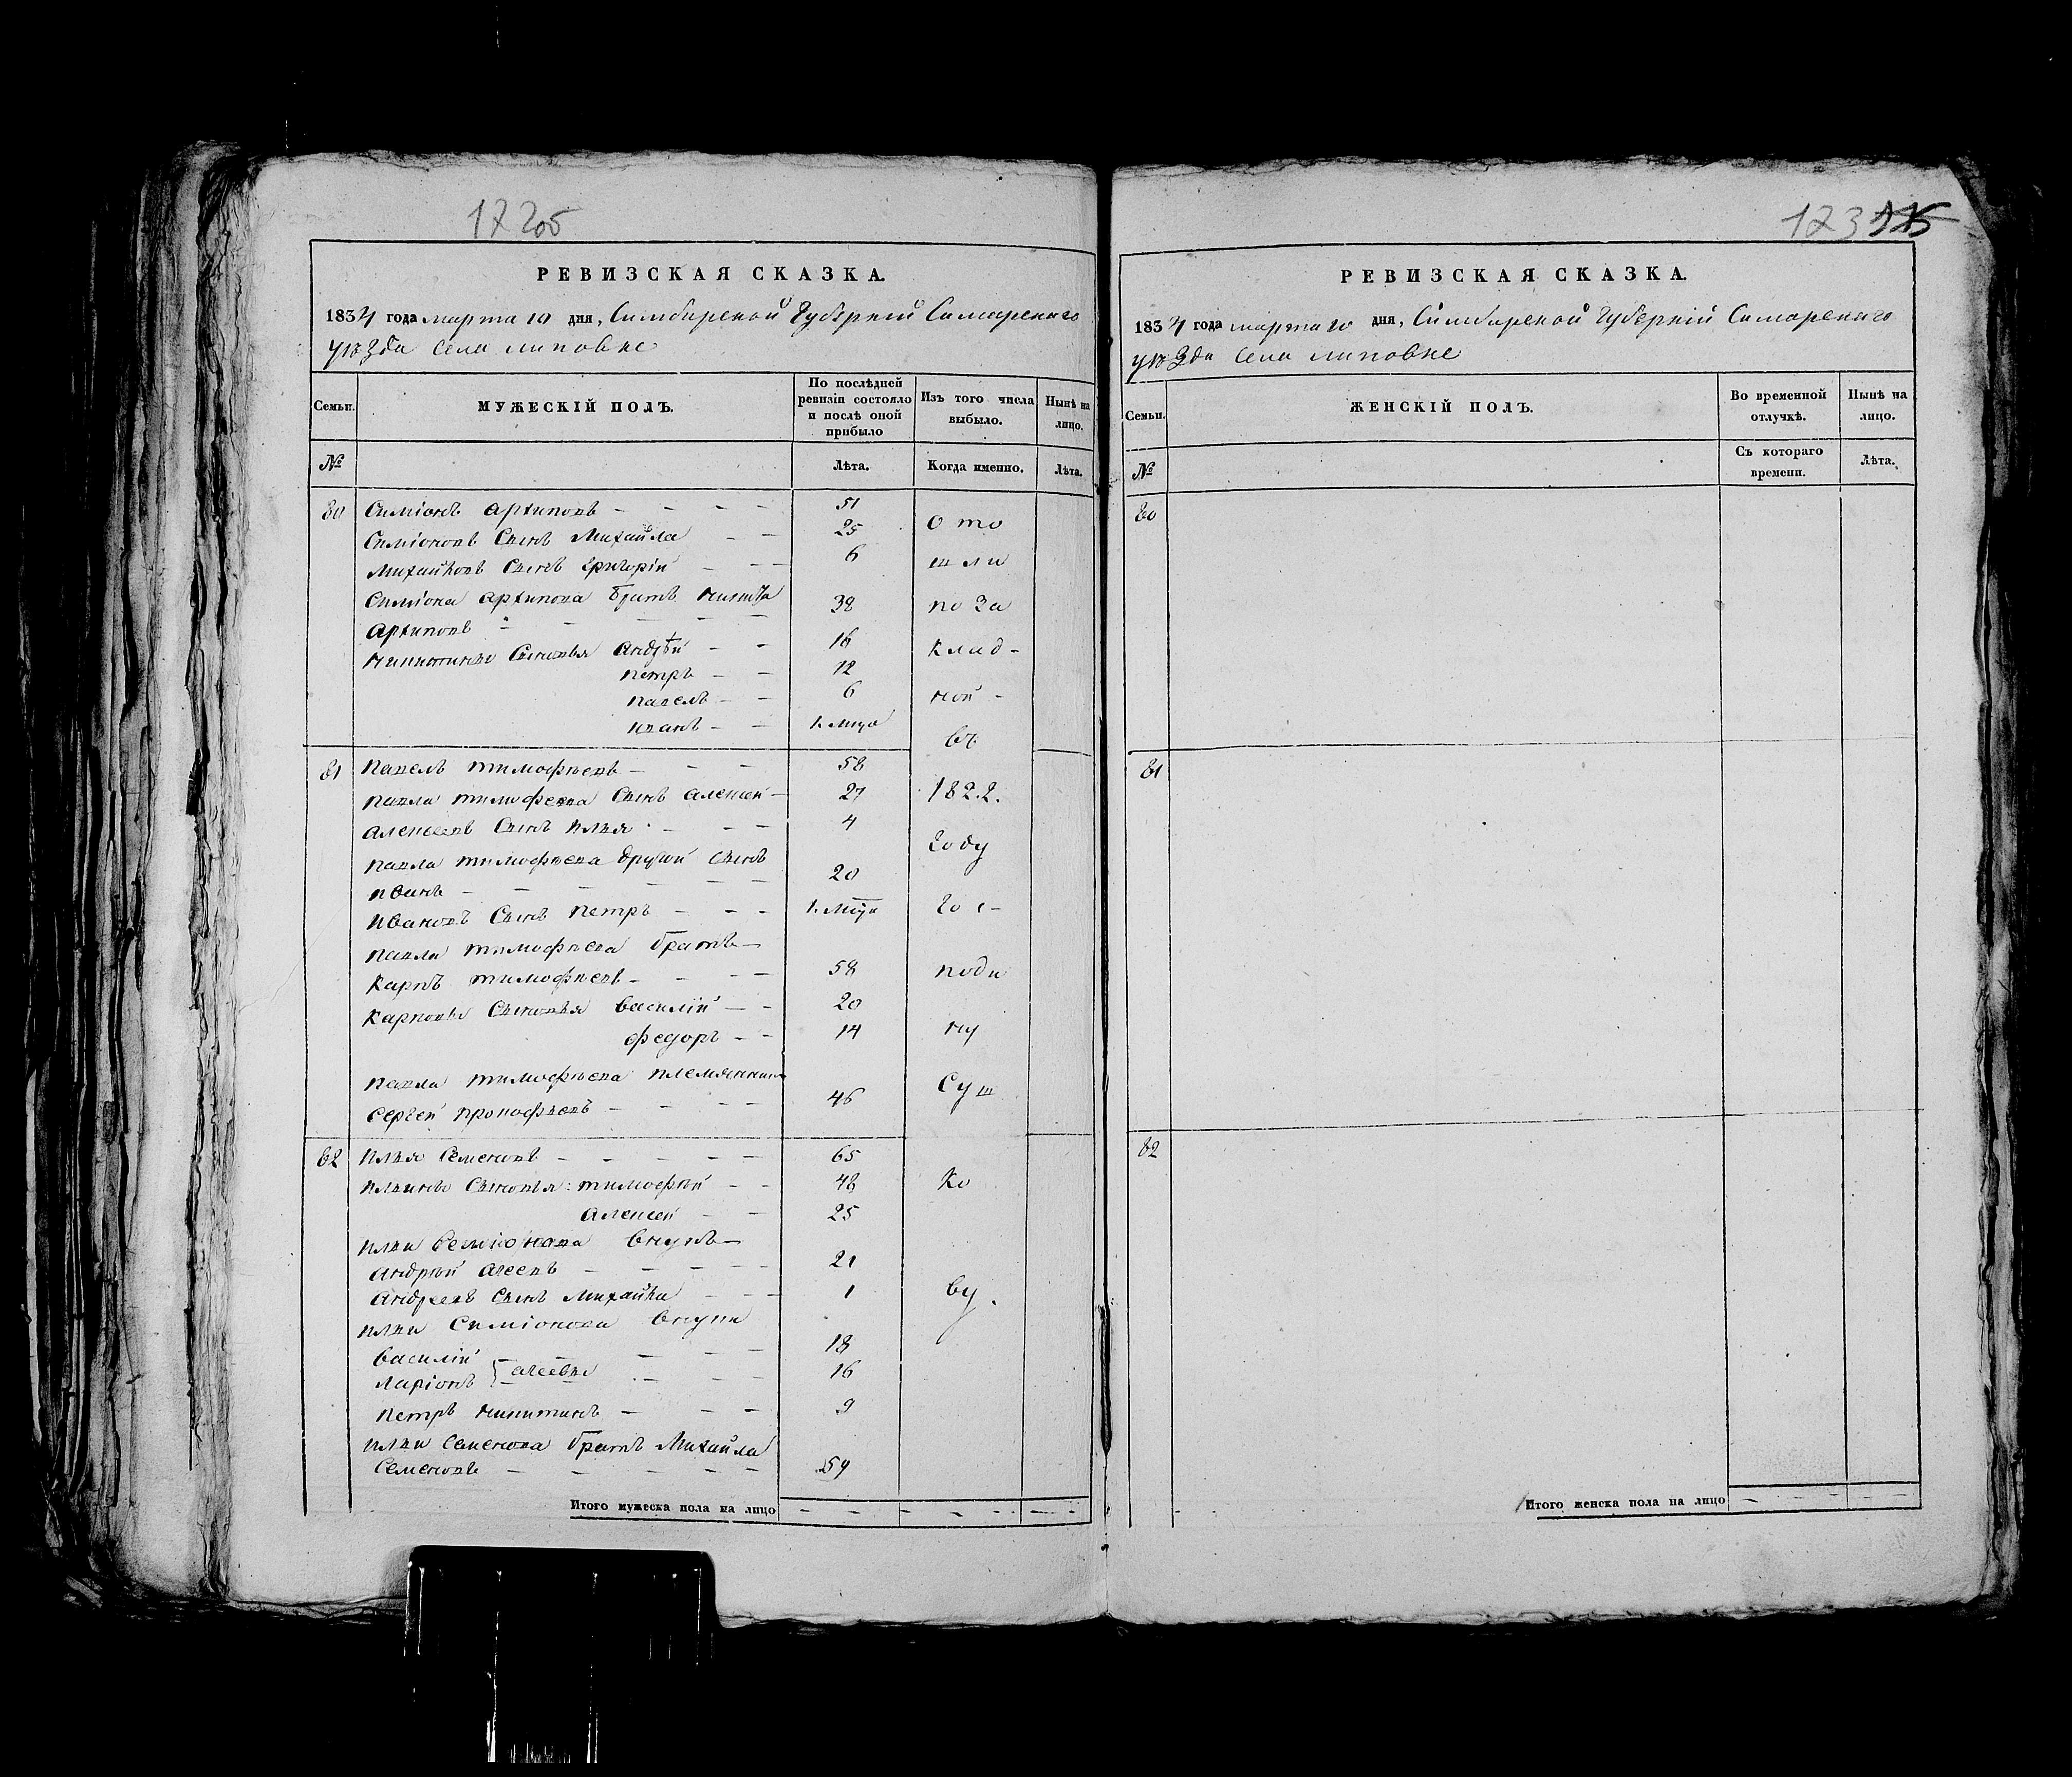 РЕВИЗСКАЯ СКАЗКА.
1834 года марта 10 дня, Симбирской Губерніи Самарскаго
уѣзда села липовке
Семьи.
МУЖЕСКІЙ ПОЛЪ.
По послѣдней ревизіи состояло и послѣ оной прибыло
Изъ того числа выбыло.
Нынѣ на лицо.
№
Лѣта.
Когда именно.
Лѣта.
80 Симіонъ архиповъ 51
Симіоновъ Сынъ Михайла 25
Михайловъ Сынъ Григорій 6
Симіона архипова братъ никита
архиповъ 38
никитины Сыновья Андрѣй 16
петръ 12
павелъ 6
иванъ
81 павелъ тимофѣевъ 58
павла тимофеева Сынъ алексей 27
алексеевъ Сынъ илья 4
павла тимофѣева другой сынъ
иванъ 20
Ивановъ Сынъ петръ
павла тимофѣева братъ
карпъ тимофѣевъ 58
карповы Сыновья василій 20
федоръ 14
павла тимофѣева племянникъ
сергей прокофьевъ 46
82 илья Семеновъ 65
ильины Сыновья: тимофѣй 48
Алексей 25
ильи Семіонова внукъ
андрѣй агеевъ 21
андреевъ сынъ михайла 1
ильи Симіонова внуки
василій 18
ларіонъ агеевы 16
петръ никитинъ 9
ильи семенова братъ Михайла
семеновъ 54
ото
шли
по за
клад-
ной -
въ
1822.
году
гос-
поди
ну
Суш
ко
ву.
Итого мужеска пола на лицо
123
РЕВИЗСКАЯ СКАЗКА.
1834 года марта 10 дня, Симбирской Губерніи Самарскаго
уѣзда села липовке
Семьи.
ЖЕНСКІЙ ПОЛЪ.
Во временной отлучкѣ.
Нынѣ на лицо.
№
Съ котораго времени.
Лѣта.
80
81
82
Итого женска пола на лицо